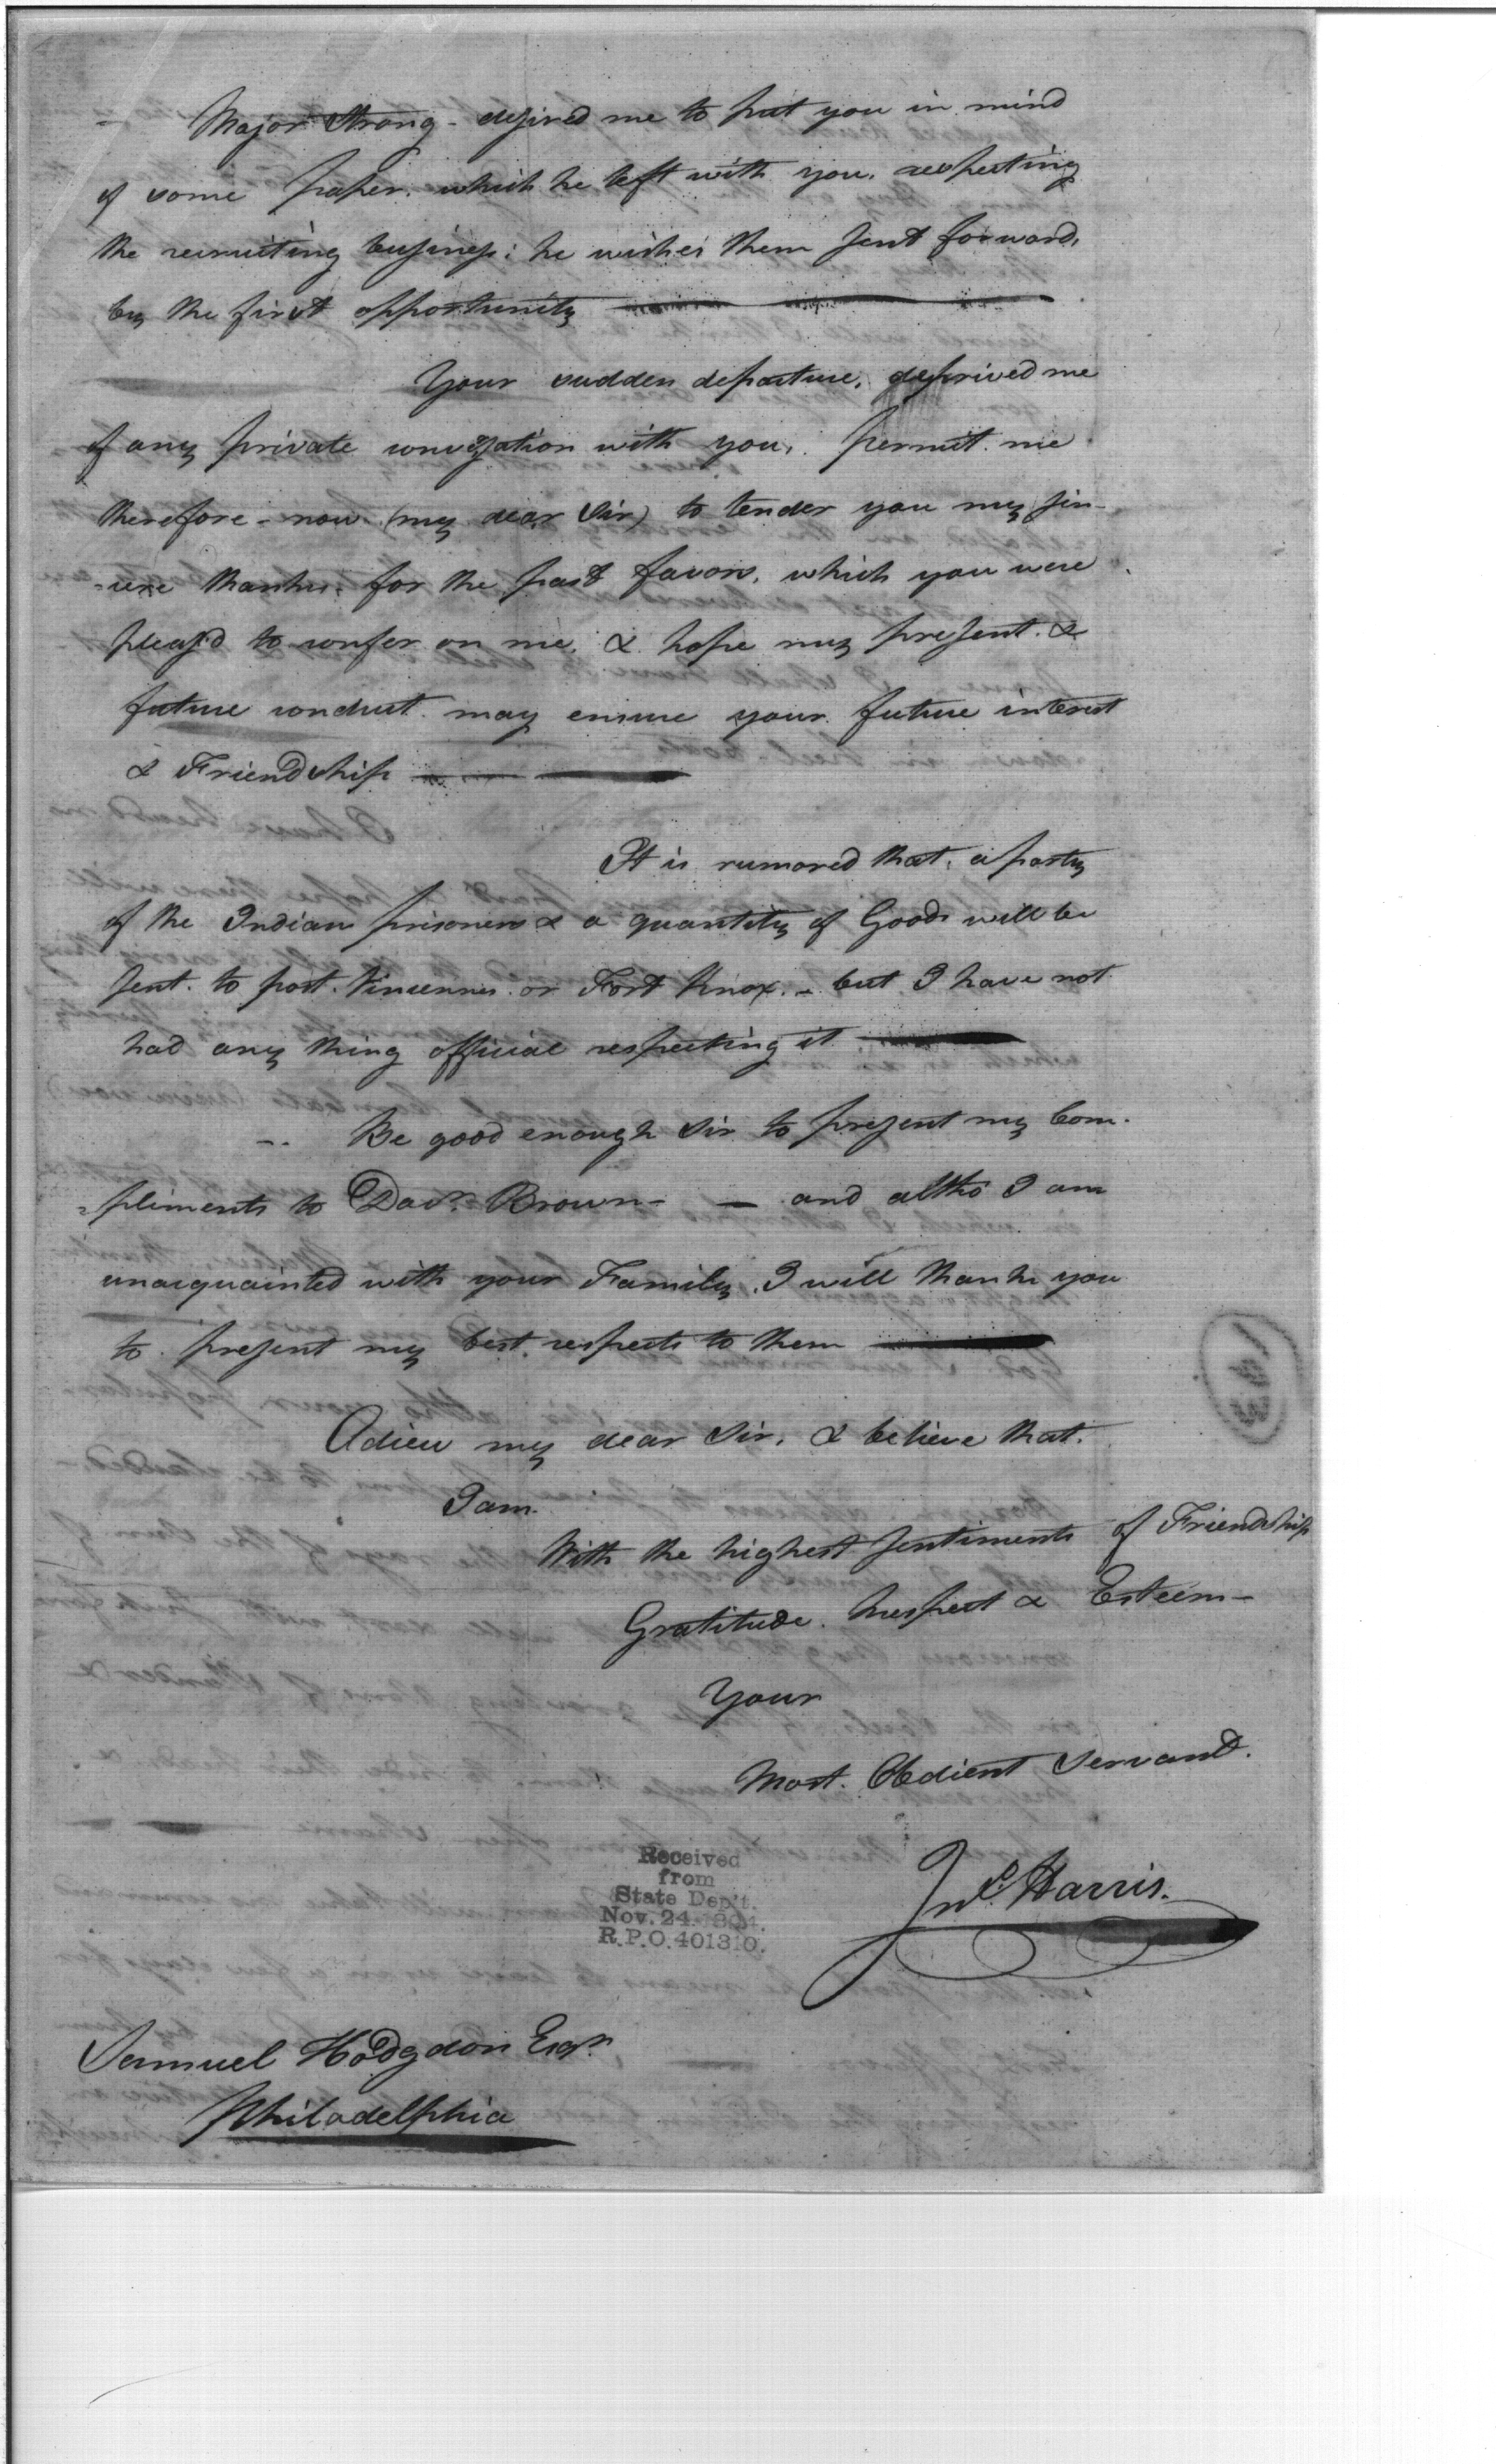 Major Strong - desired me to put you in mind
of some paper. which he left with you. respecting
the recruiting business: he wishes them sent forward,
by the first opportunity
Your sudden departure, deprived me
of any private conversation with you,. permit me
therefore - now (my dear Sir) to tender you my sin-
-cere thanks - for the past favors, which you were
pleas'd to confer on me, & hope my present. &
future conduct. may ensure your future interest
& Friendship
It is rumored that, a party
of the Indian prisoners & a quantity of Goods will be
sent. to post. Vincennes. or Fort Knox. - but I have not
had any thing official respecting it
-. Be good enough Sir to present my Com-
=pliments to Brown - — and altho I am
unacquainted with your Family, I will thank you
to present my best respects to them
Adieu my dear Sir, & believe that.
I am.
With the highest sentiments of Friendship
Gratitude. Respect & Esteem -
Your
Most. Obedient Servant.
Received
from
State Dep't.
Nov. 24
R.P.O. 401310.
Jno. Harris.
Samuel Hodgdon Esqr.
Philadelphia